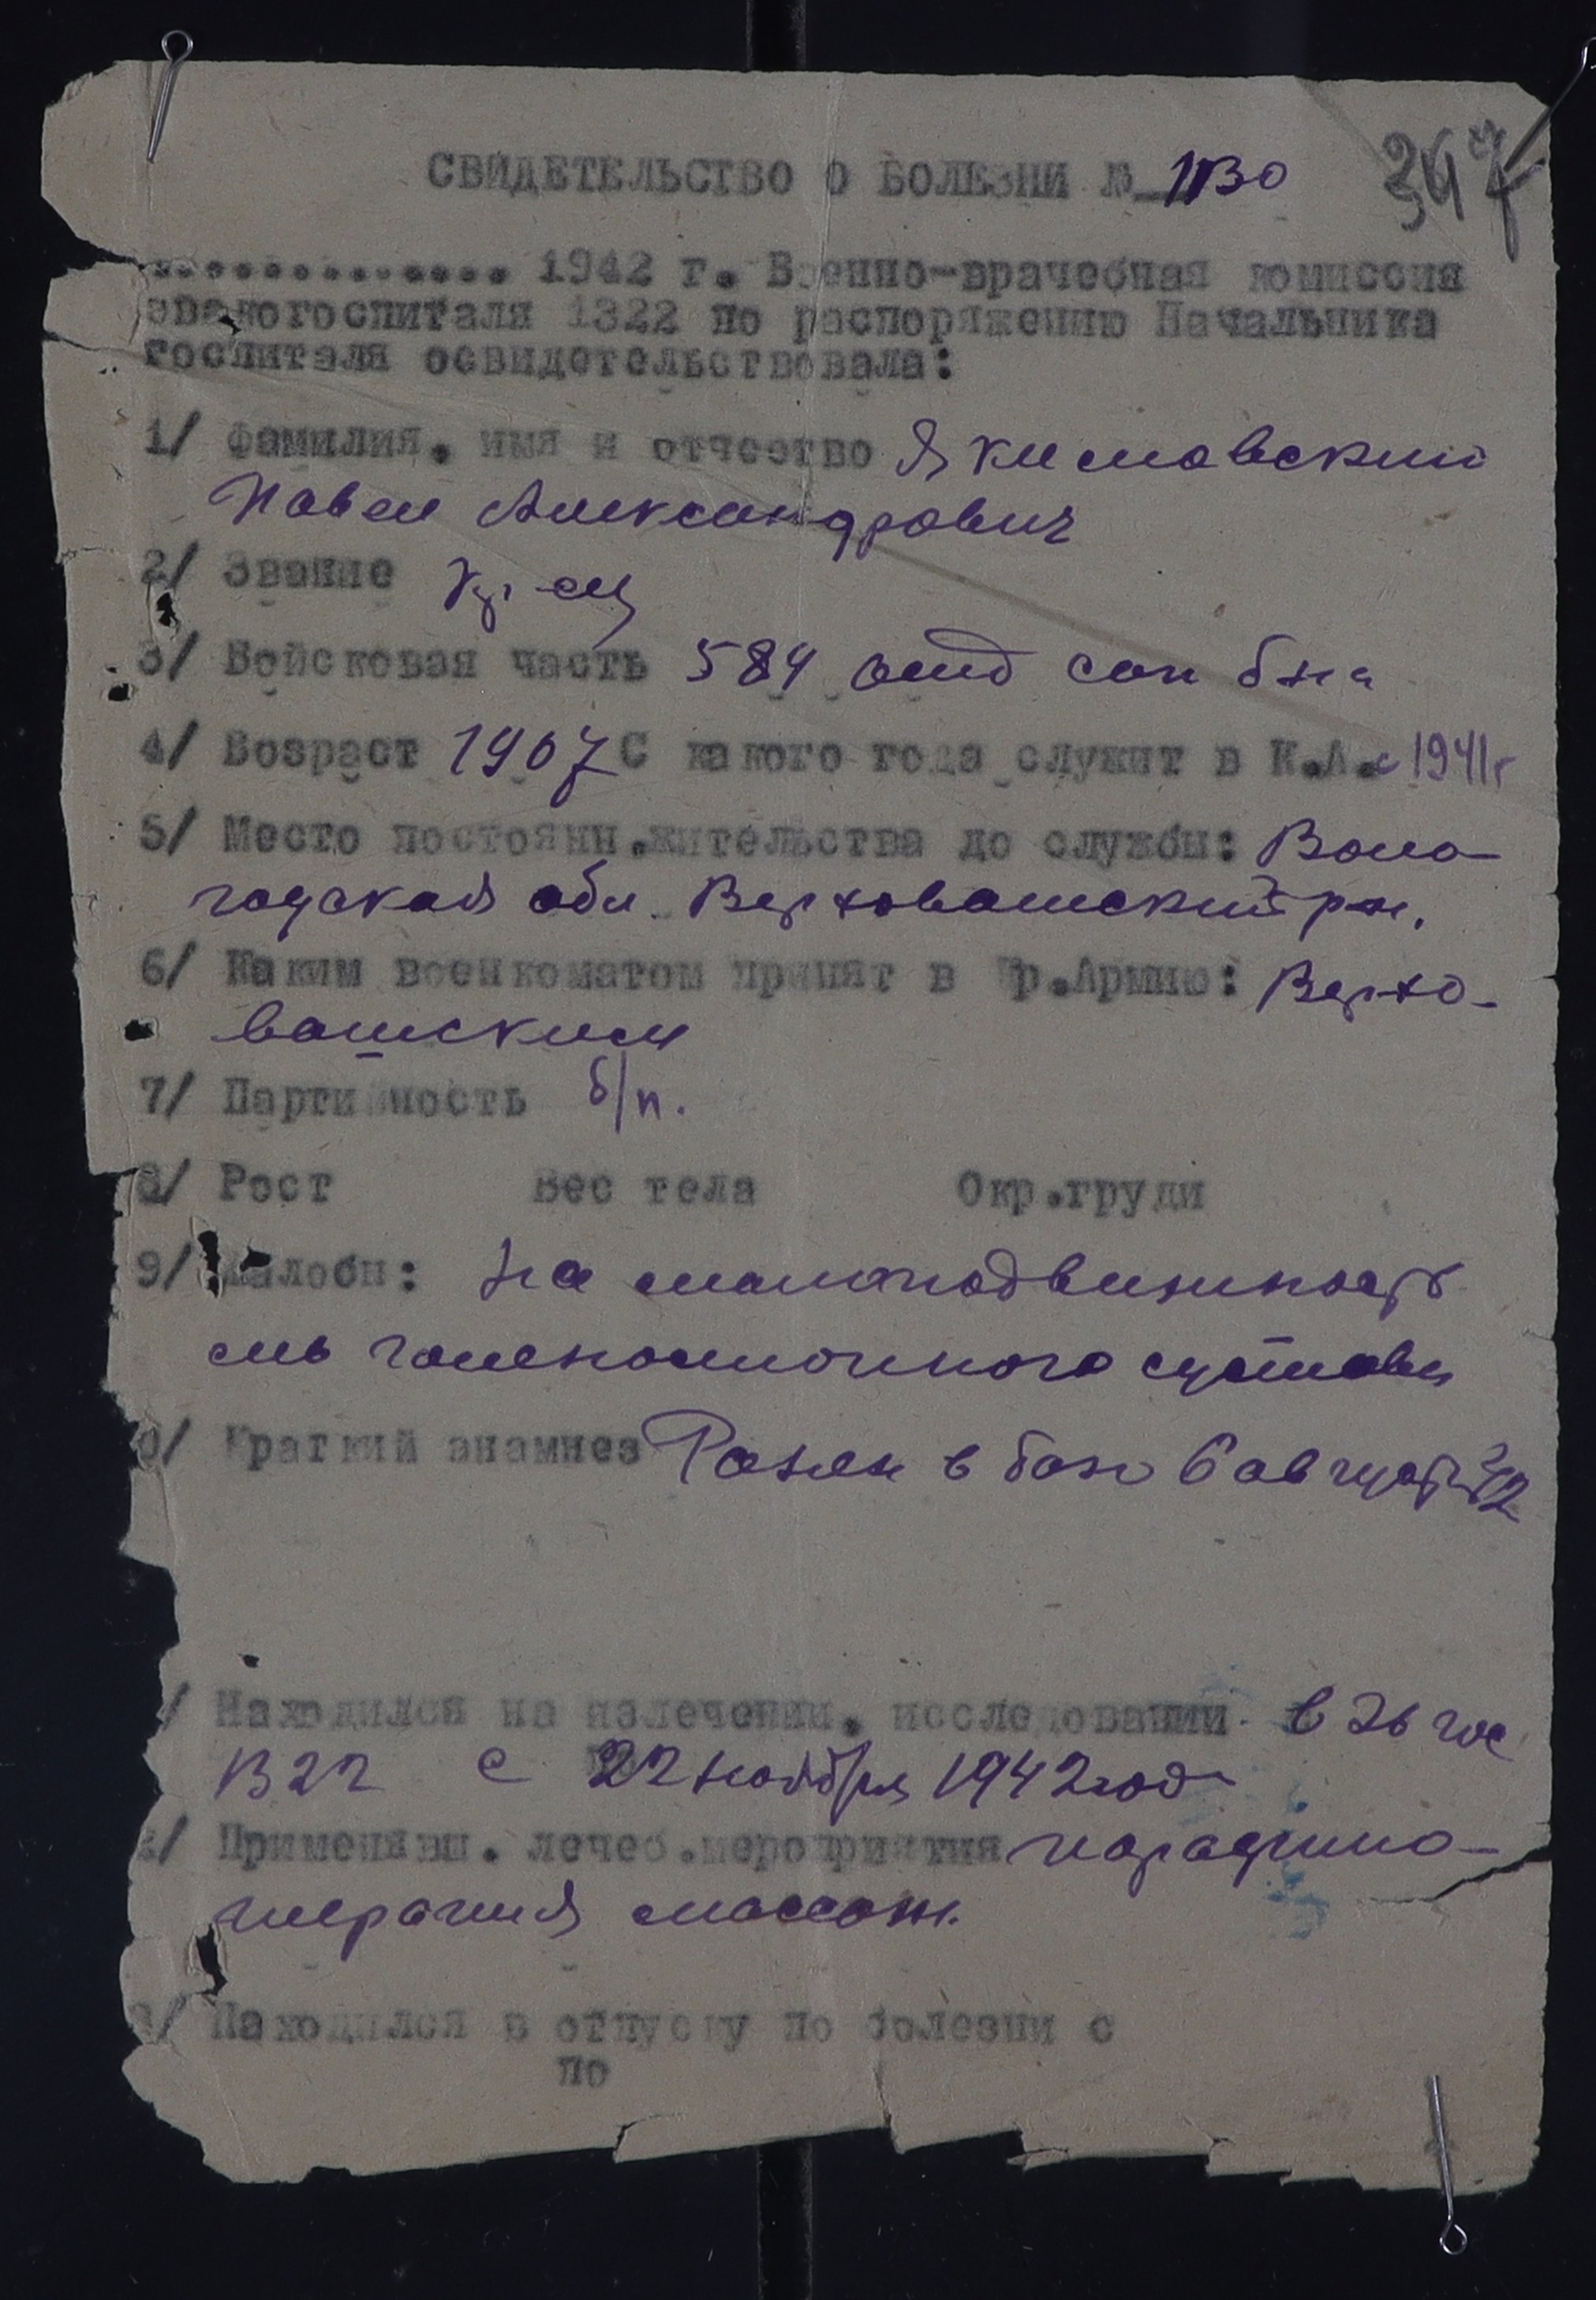 СВИДЕТЕЛЬСТВО О БОЛЕЗНИ № 1130
367
............. 1942 г. Военно-врачебная комиссия
эвакогоспиталя 1322 по распоряжению Начальника
госпиталя освидетельствовала:
1/ Фамилия, имя и отчество Якимовский
Павел Александрович
2/ Звание кр-ец
3/ Войсковая часть 584 отд сап б-на
4/ Возраст 1907 С какого года служит в К.А. с 1941 г
5/ Место постоянн.жительства до службы: Воло-
годская обл. Верховажский р-н.
6/ Каким военкоматом принят в Кр.Армию: Верхо-
важским
7/ Партийность б/п.
8/ Рост Вес тела Окр.груди
9/ Жалобы: на малоподвижность
лев голеностопного сустава
0/ Краткий анамнез Ранен в бою 6 августа 42
/ Находился на излечении, исследовании в Эв гос
1322 с 22 ноября 1942 года
/ Применявш. лечеб.мероприятия парафино-
терапия массаж.
3/ Находился в отпуску по болезни с
по